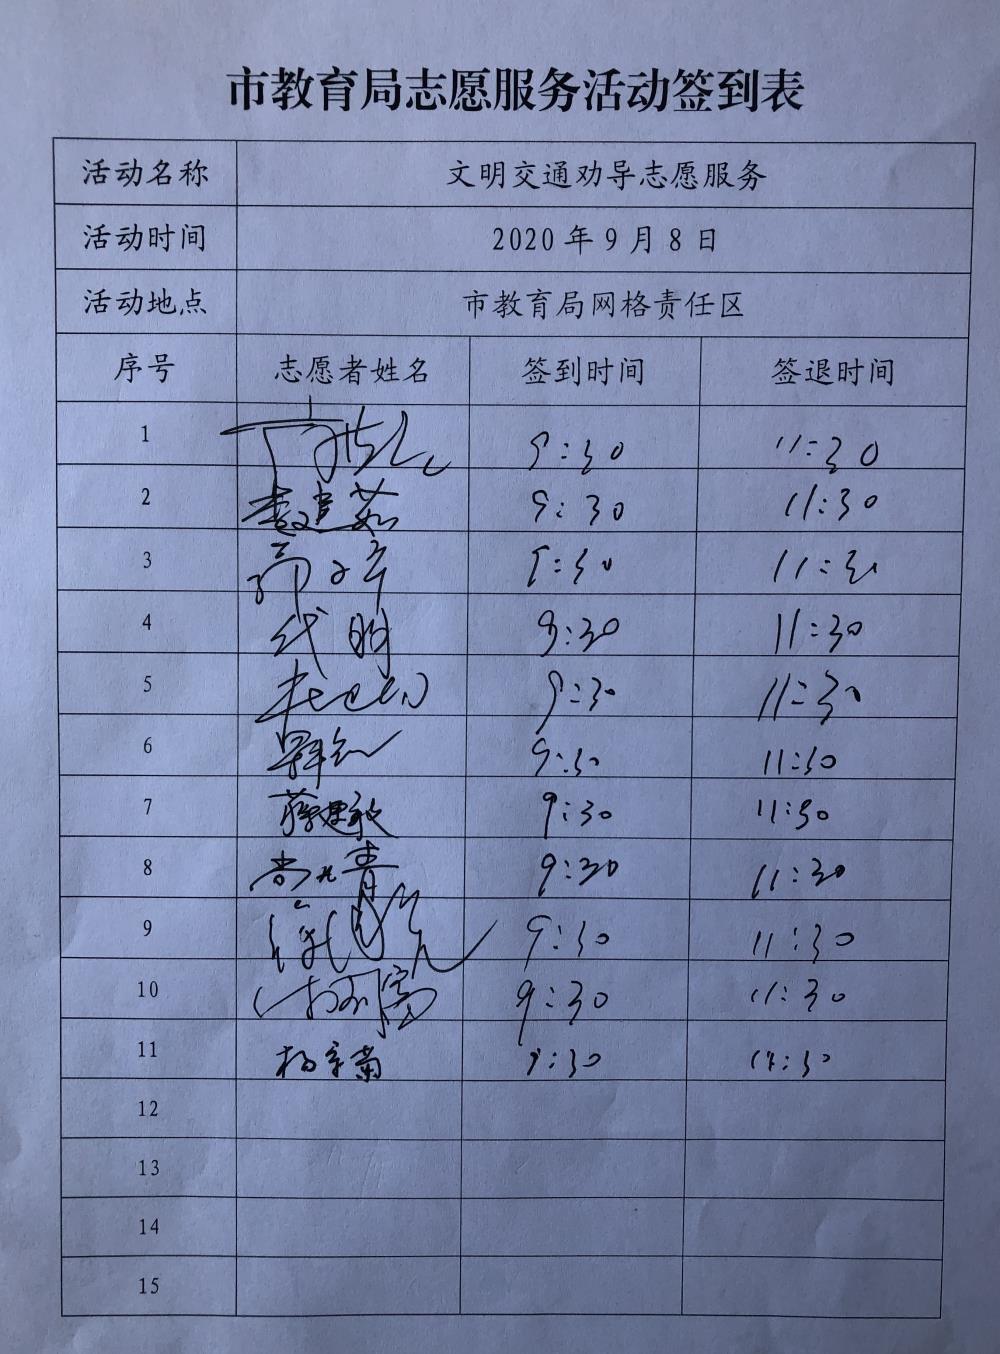 市教育局志愿服务活动签到表
活动名称 文明交通劝导志愿服务
活动时间 2020年9月8日
活动地点 市教育局网格责任区
序号 志愿者姓名 签到时间 签退时间
1 9:30 11:30
2 9:30 11:30
3 9:30 11:30
4 代明 9:30 11:30
5 9:30 11:30
6 9:30 11:30
7 蒋建敏 9:30 11:30
8 9:30 11:30
9 9:30 11:30
10 9:30 11:30
11 9:30 11:30
12
13
14
15